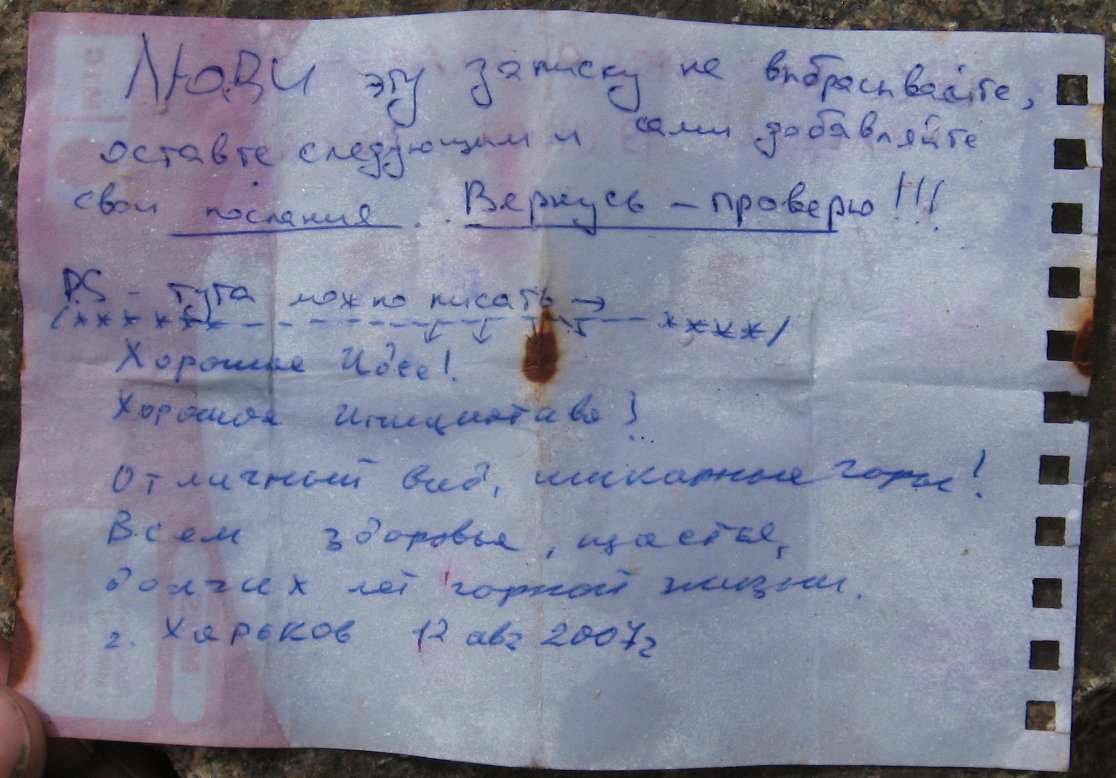 Люди эту записку не выбрасывайте,
оставте следующим и сами добавляйте
свои послания... Вернусь - проверю!!!
P.S - тута можно писать →
(****** - - - - - - - - - - ****/
Хорошая Идея!
Хорошая инициатива!
Отличный вид, шикарные горы!
Всем здоровья, щастья,
долгих лет горной жизни.
г. Харьков 12 авг 2007г